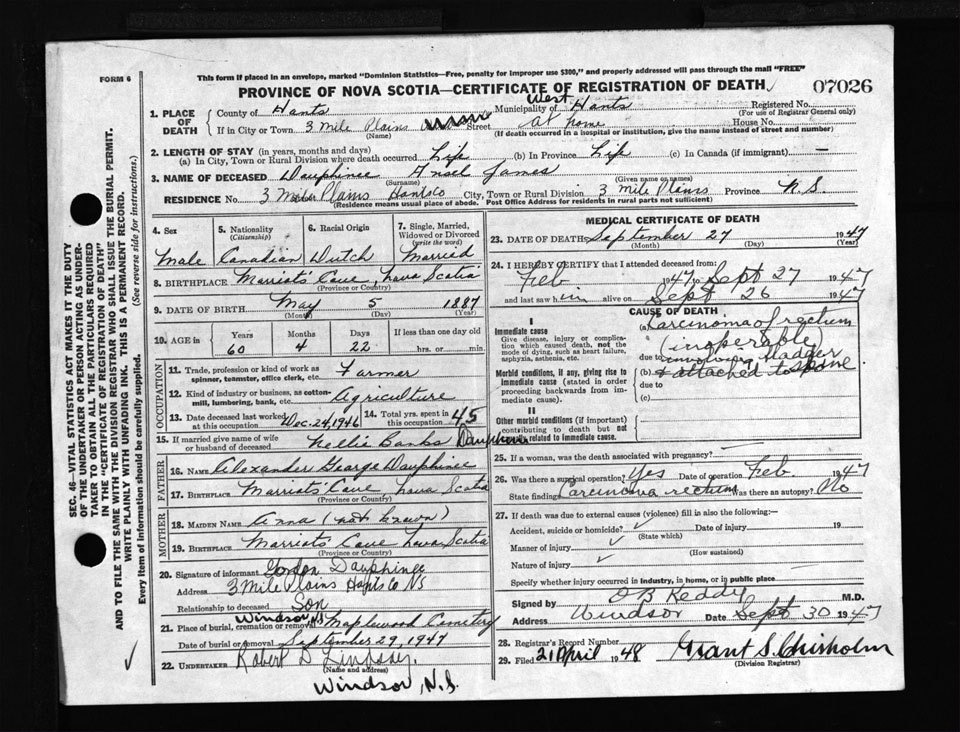 FORM 6
This form if placed in an envelope, marked "Dominion Statistics—Free, penalty for improper use $300," and properly addressed will pass through the mail "FREE"
PROVINCE OF NOVA SCOTIA—CERTIFICATE OF REGISTRATION OF DEATH
07026
SEC. 46—VITAL STATISTICS ACT MAKES IT THE DUTY
OF THE UNDERTAKER OR PERSON ACTING AS UNDER-
TAKER TO OBTAIN ALL THE PARTICULARS REQUIRED
IN THE "CERTIFICATE OF REGISTRATION OF DEATH"
AND TO FILE THE SAME WITH THE DIVISION REGISTRAR WHO SHALL ISSUE THE BURIAL PERMIT.
WRITE PLAINLY WITH UNFADING INK. THIS IS A PERMANENT RECORD.
Every item of information should be carefully supplied. (See reverse side for instructions.)
1. PLACE OF DEATH
County of Hants
Municipality of West Hants
Registered No.
(For use of Registrar General only)
If in City or Town 3 Mile Plains Street at home House No.
(Name)
(If death occurred in a hospital or institution, give the name instead of street and number)
2. LENGTH OF STAY (in years, months and days)
(a) In City, Town or Rural Division where death occurred Life (b) In Province Life (c) In Canada (if immigrant) —
3. NAME OF DECEASED Dauphinee Ansel James
(Surname) (Given name or names)
RESIDENCE No. 3 Mile Plains Hants Co City, Town or Rural Division 3 Mile Plains Province N.S.
(Residence means usual place of abode. Post Office Address for residents in rural parts not sufficient)
4. Sex
Male
5. Nationality
(Citizenship)
Canadian
6. Racial Origin
Dutch
7. Single, Married,
Widowed or Divorced
(write the word)
Married
8. BIRTHPLACE Marriots' Cove, Nova Scotia
(Province or Country)
9. DATE OF BIRTH May 5 1887
(Month) (Day) (Year)
10. AGE
Years Months Days If less than one day old
60 4 22 hrs. or min.
OCCUPATION
11. Trade, profession or kind of work as
spinner, teamster, office clerk, etc. Farmer
12. Kind of industry or business, as cotton-
mill, lumbering, bank, etc. Agriculture
13. Date deceased last worked
at this occupation Dec. 24, 1946
14. Total yrs. spent in
this occupation 45
15. If married give name of wife
or husband of deceased Nellie Banks Dauphinee
FATHER
16. NAME Alexander George Dauphinee
17. BIRTHPLACE Marriots' Cove Nova Scotia
(Province or Country)
MOTHER
18. MAIDEN NAME Anna (not known)
19. BIRTHPLACE Marriots Cove Nova Scotia
(Province or Country)
20. Signature of informant Gordon Dauphinee
Address 3 Mile Plains Hants Co NS
Relationship to deceased Son
21. Place of burial, cremation or removal Windsor N.S Maplewood Cemetery
Date of burial or removal September 29, 1947
22. UNDERTAKER Robert D Lindsay.
(Name and address)
Windsor, N.S.
MEDICAL CERTIFICATE OF DEATH
23. DATE OF DEATH September 27 1947
(Month) (Day) (Year)
24. I HEREBY CERTIFY that I attended deceased from:
Feb 1947 to Sept 27 1947
and last saw him alive on Sept 26 1947
CAUSE OF DEATH
I
Immediate cause
Give disease, injury or complica-
tion which caused death, not the
mode of dying, such as heart failure,
asphyxia, asthenia, etc.
(a) Carcinoma of rectum
(inoperable)
due to involving bladder
Morbid conditions, if any, giving rise to
immediate cause (stated in order
proceeding backwards from im-
mediate cause).
(b) & attached to bone
due to
(c)
II
Other morbid conditions (if important)
contributing to death but not
causally related to immediate cause.
25. If a woman, was the death associated with pregnancy?
26. Was there a surgical operation? Yes Date of operation Feb 1947
State findings Carcinoma rectum Was there an autopsy? No
27. If death was due to external causes (violence) fill in also the following:—
Accident, suicide or homicide? Date of injury 19
(State which)
Manner of injury
(How sustained)
Nature of injury
Specify whether injury occurred in industry, in home, or in public place
Signed by D B Reddy M.D.
Address Windsor Date Sept 30 1947
28. Registrar's Record Number
29. Filed 21 April 1948 Grant S. Chisholm
(Division Registrar)